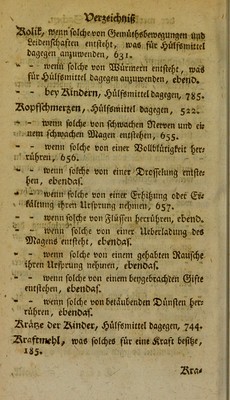 Verzeichniß
Kolik, wenn solche von Gemüthsbewegungen und
Leidenschaften entsteht, was für Hülfsmittel
dagegen anzuwenden, 631.
- - wenn solche von Würmern entsteht, was
für Hülfsmittel dagegen anzuwenden, ebend.
- - bey Kindern, Hülfsmittel dagegen, 785.
Kopfschmerzen, Hülfsmittel dagegen, 522.
- - wenn solche von schwachen Nerven und ei
nem schwachen Magen entstehen, 655.
- - wenn solche von einer Vollblütigkeit her
rühren, 656.
- - wenn solche von einer Drosselung entste
hen, ebendas.
- - wenn solche von einer Erhitzung oder Er
kältung ihren Ursprung nehmen, 657.
- - wenn solche von Flüssen herrühren, ebend.
- - wenn solche von einer Ueberladung des
Magens entsteht, ebendas.
- - wenn solche von einem gehabten Rausche
ihren Ursprung nehmen, ebendas.
- - wenn solche von einem beygebrachten Gifte
entstehen, ebendas.
- - wenn solche von betäubenden Dünsten her
rühren, ebendas.
Krätze der Kinder, Hülfsmittel dagegen, 744.
Kraftmehl, was solches für eine Kraft besitze,
185.
Kra-